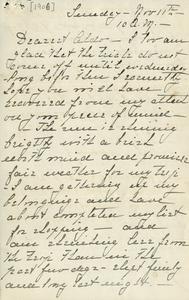 [1906]
Sunday - Nov 11th
10 A.M. -
Dearest Elsie - I too am
glad that the trials do not
come off until
long before then I
hope you will have
recovered from my attack
on your peace of mind -
The sun is shining
bright with a brisk
north wind and promises
fair weather for my trip
I am gathering up my
belongings and have
about completed my list
for shopping - and
am shrinking less from
the trip than in the
past few days - slept finely
and long last night -